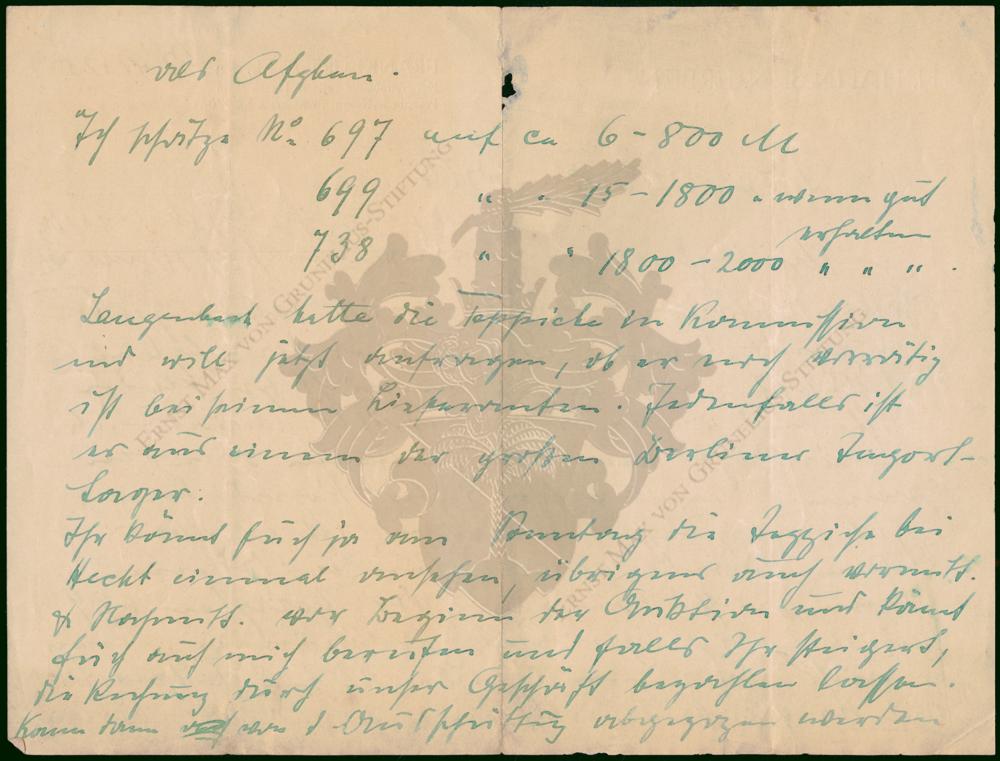 als Afghan.
Ich schätze No. 697 auf ca 6-800 M
699 " " 15-1800 " wenn gut
erhalten
738 " " 1800-2000 " " " .
Langenbach hatte die Teppiche in Kommission
und will jetzt anfragen, ob er noch vorrätig
ist bei seinem Lieferanten. Jedenfalls ist
er aus einem der großen Berliner Import-
Lager.
Ihr könnt Euch ja am Sonntag die Teppiche bei
Hecht einmal ansehen, übrigens auch vormitt.
& Nachmitt. vor Beginn der Auktion und könnt
Euch auf mich berufen und falls Ihr steigert,
die Rechnung durch unser Geschäft bezahlen lassen.
Kann dann von d. Ausschüttung abgezogen werden
ERNST MAX VON GRUNELIUS-STIFTUNG
ERNST MAX VON GRUNELIUS-STIFTUNG